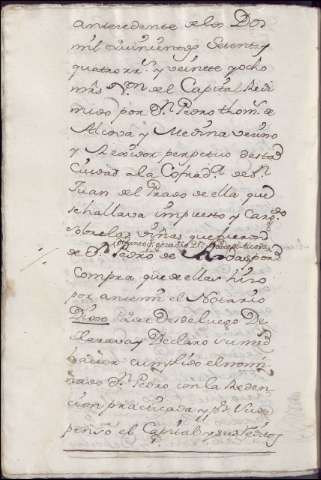 antecedente de los Dos
mil quinientos setenta y
quatro rr.s y veinte y ocho
mrs V.on del Capital Redi
mido por D.n Pedro thom.s de
Alcova y Medina vecino
y Rexidor perpetuo de esta
Ciudad a la Cofrad.a de S.n
Juan del Prado de ella que
se hallava impuesto y Carg.do
sobre las viñas que fueron
de D.n Pedro de por
Compra que de ellas hizo
por ante mi el Notario
Dixo: que desde luego De
clarava y Declaro su md
haver cumplido el nomi
nado D.n Pedro con la Reden
cion practicada y
el Capital